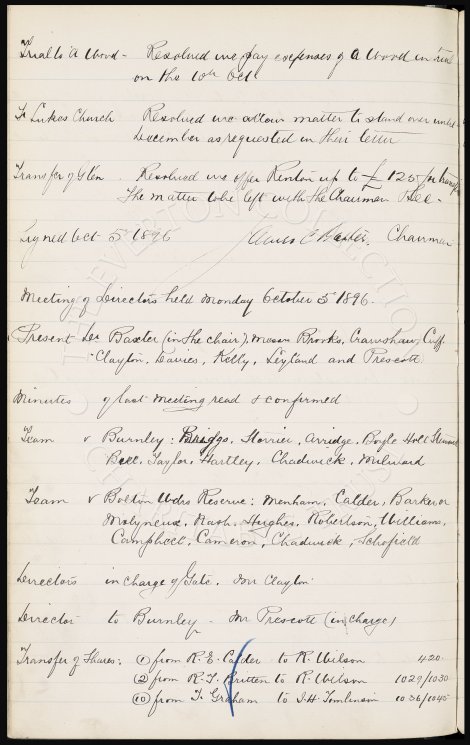 Trial to A Wood - Resolved we pay expenses of A Wood in trial
on the 10th Oct
St Lukes Church Resolved we allow matter to stand over until
December as requested in their letter
Transfer of Glen. Resolved we offer Renton up to £125 for transfer
The matter to be left with the Chairman & Sec -
Signed Oct 5th 1896 James C Baxter. Chairman
Meeting of Directors held Monday October 5th 1896.
Present Dr Baxter (in the chair), Messrs Brooks, Crawshaw, Cuff
Clayton, Davies, Kelly, Leyland and Prescott
Minutes of last meeting read & confirmed
Team v Burnley: Briggs, Storrier, Arridge, Boyle Holt Stewart
Bell, Taylor, Hartley, Chadwick, Milward
Team v Bolton Wdrs Reserve: Menham, Calder, Barker or
Molyneux, Nash, Hughes, Robertson, Williams,
Campbell, Cameron, Chadwick, Schofield
Directors in charge of Gate. Mr Clayton
Director to Burnley - Mr Prescott (in charge)
Transfer of Shares: (1) from R. E. Calder to R. Wilson 420.
(2) from R. T. Britten to R. Wilson 1029/1030
(10) from T. Graham to J. H. Tomlinson 1036/1045